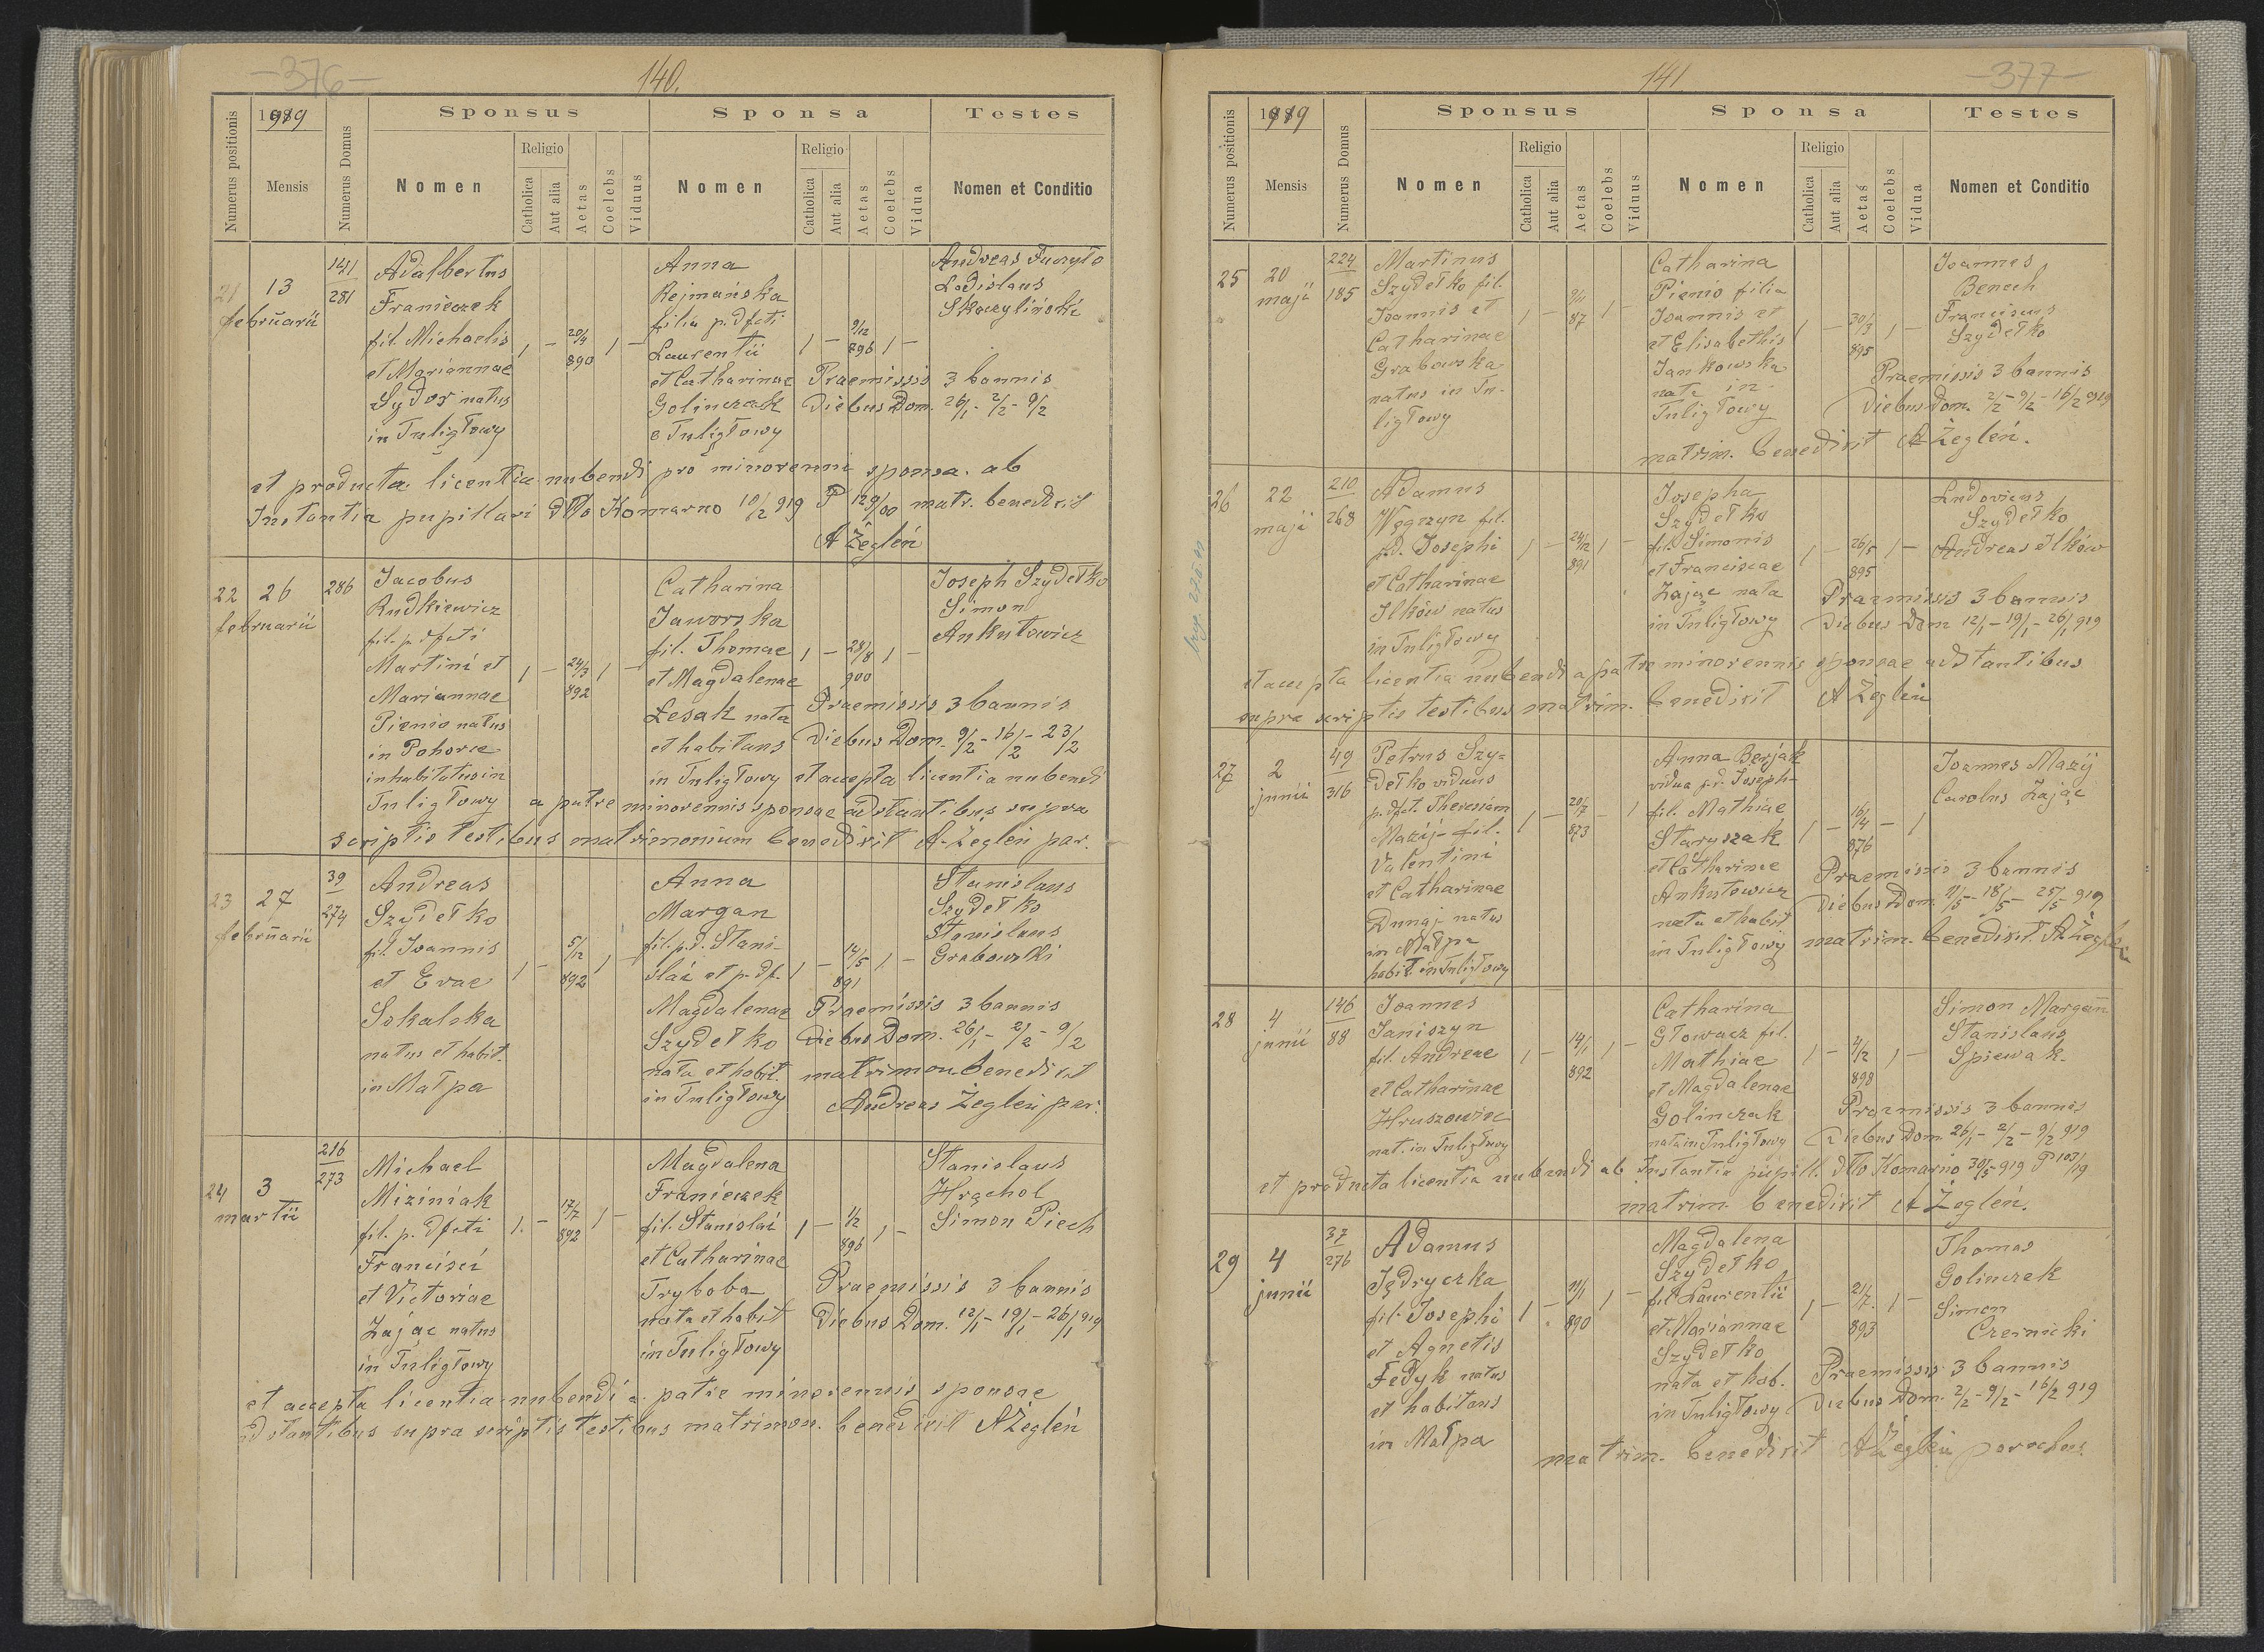 -376-
140.
Numerus positionis
1989
Mensis
Numerus Domus
Sponsus
Nomen
Religio
Catholica
Aut alia
Aetas
Coelebs
Viduus
Sponsa
Nomen
Religio
Catholica
Aut alia
Aetas
Coelebs
Vidua
Testes
Nomen et Conditio
21
13
februarii
141
281
Adalbertus
Franieczek
fil. Michaelis
et Mariannae
Sydor natus
in Tuligłowy
1 - 20/4 890 1 -
Anna
Rejmańska
filia p. dfcti
Laurentii
et Catharinae
Golinczak
e Tuligłowy
1 - 9/12 896 1 -
Andreas Furyło
Ladislaus
Skoczyliński
Praemissis 3 bannis
Diebus Dom. 26/1 - 2/2 - 9/2
et producta licentia nubendi pro minorenni sponsa ab
Instantia pupillari dtto Komarno 10/2 919 P 129/00 matr. benedixit
A Żegleń
22 26
februarii
286
Jacobus
Rudkiewicz
fil. p. dfcti
Martini et
Mariannae
Pienio natus
in Pohorce
inhabitatus in
Tuligłowy
1 - 24/3 892 1 -
Catharina
Jaworska
fil. Thomae
et Magdalenae
Lesak nata
et habitans
in Tuligłowy
1 - 28/8 900 1 -
Joseph Szydełko
Simon
Ankutowicz
Praemissis 3 bannis
Diebus Dom. 9/2 - 16/2 - 23/2
et accepta licentia nubendi
a patre minorennis sponsae adstantibus supra
scriptis testibus matrimonium benedixit A. Żegleń par.
23 27
februarii
39
274
Andreas
Szydełko
fil. Joannis
et Evae
Sokalska
natus et habit.
in Małpa
1 - 5/12 892 1 -
Anna
Margan
fil. p. d. Stani-
slai et p. df.
Magdalenae
Szydełko
nata et habit.
in Tuligłowy
1 - 14/5 891 1 -
Stanislaus
Szydełko
Stanislaus
Grabowski
Praemissis 3 bannis
Diebus Dom. 26/1 - 2/2 - 9/2
matrimon. benedixit
Andreas Żegleń par.
24 3
martii
216
273
Michael
Miziniak
fil. p. dfcti
Francisci
et Victoriae
Zając natus
in Tuligłowy
1. - 17/7 892 1 -
Magdalena
Franieczek
fil. Stanislai
et Catharinae
Tryboba
nata et habit
in Tuligłowy
1 - 1/2 896 1 -
Stanislaus
Hrąchol
Simon Piech
Praemissis 3 bannis
Diebus Dom. 12/1 - 19/1 - 26/1 919
et accepta licentia nubendi a patre minorennis sponsae
adstantibus supra scriptis testibus matrimon. benedixit A Żegleń
141
-377-
Numerus positionis
1919
Mensis
Numerus Domus
Sponsus
Nomen
Religio
Catholica
Aut alia
Aetas
Coelebs
Viduus
Sponsa
Nomen
Religio
Catholica
Aut alia
Aetas
Coelebs
Vidua
Testes
Nomen et Conditio
25 20
maji
224
185
Martinus
Szydełko fil.
Joannis et
Catharinae
Grabowska
natus in Tu-
ligłowy
1 - 9/11 87 1 -
Catharina
Pienio filia
Joannis et
et Elisabethis
Jankowska
nata in
Tuligłowy
1 - 30/3 895 1 -
Joannes
Benech
Franciscus
Szydełko
Praemissis 3 bannis
Diebus Dom. 2/2 - 9/2 - 16/2 919
matrim. benedixit A Żegleń.
26 22
maji
210
268
Adamus
Węgrzyn fil.
p.d. Josephi
et Catharinae
Ilków natus
in Tuligłowy
1 - 24/12 891 1 -
Josepha
Szydełko
fil. Simonis
et Franciscae
Zając nata
in Tuligłowy
1 - 26/5 895 1 -
Ludovicus
Szydełko
Andreas Ilków
Praemissis 3 bannis
Diebus Dom 12/1 - 19/1 - 26/1 919
et accepta licentia nubendi a patre minorennis sponsae adstantibus
supra scriptis testibus matrim. benedixit A Żegleń
27 2
junii
49
316
Petrus Szy-
dełko viduus
p. dfct. Theresiam
Mazij - fil.
Valentini
et Catharinae
Dunaj natus
in Małpa
habit. in Tuligłowy
1 - 20/7 873 - 1
Anna Berjak
vidua p.d. Joseph-
fil. Mathiae
Staryszak
et Catharinae
Ankutowicz
nata et habit
in Tuligłowy
1 - 16/4 876 - 1
Joannes Mazij
Carolus Zając
Praemissis 3 bannis
Diebus Dom. 11/5 - 18/5 - 25/5 919
matrim. benedixit A Żegleń
28 4
junii
146
88
Joannes
Janiszyn
fil. Andreae
et Catharinae
Hruszowiec
nat. in Tuligłowy
1 - 14/1 892 1 -
Catharina
Głowacz fil.
Mathiae
et Magdalenae
Golinczak
nata in Tuligłowy
1 - 4/12 898 1 -
Simon Margan
Stanislaus
Spiewak
Praemissis 3 bannis
Diebus Dom 26/1 - 2/2 - 9/2 919
et producta licentia nubendi ab Instantia pupill. dtto Komarno 30/5 919 P 103/19
matrim. benedixit A Żegleń.
29 4
junii
37
276
Adamus
Jędryczka
fil. Josephi
et Agnetis
Fedyk natus
et habitans
in Małpa
1 - 11/1 890 1 -
Magdalena
Szydełko
fil Laurentii
et Mariannae
Szydełko
nata et hab.
in Tuligłowy
1 - 21/7 893 1 -
Thomas
Golinczek
Simon
Czernicki
Praemissis 3 bannis
Diebus Dom. 2/2 - 9/2 - 16/2 919
matrim. benedixit A Żegleń parochus.